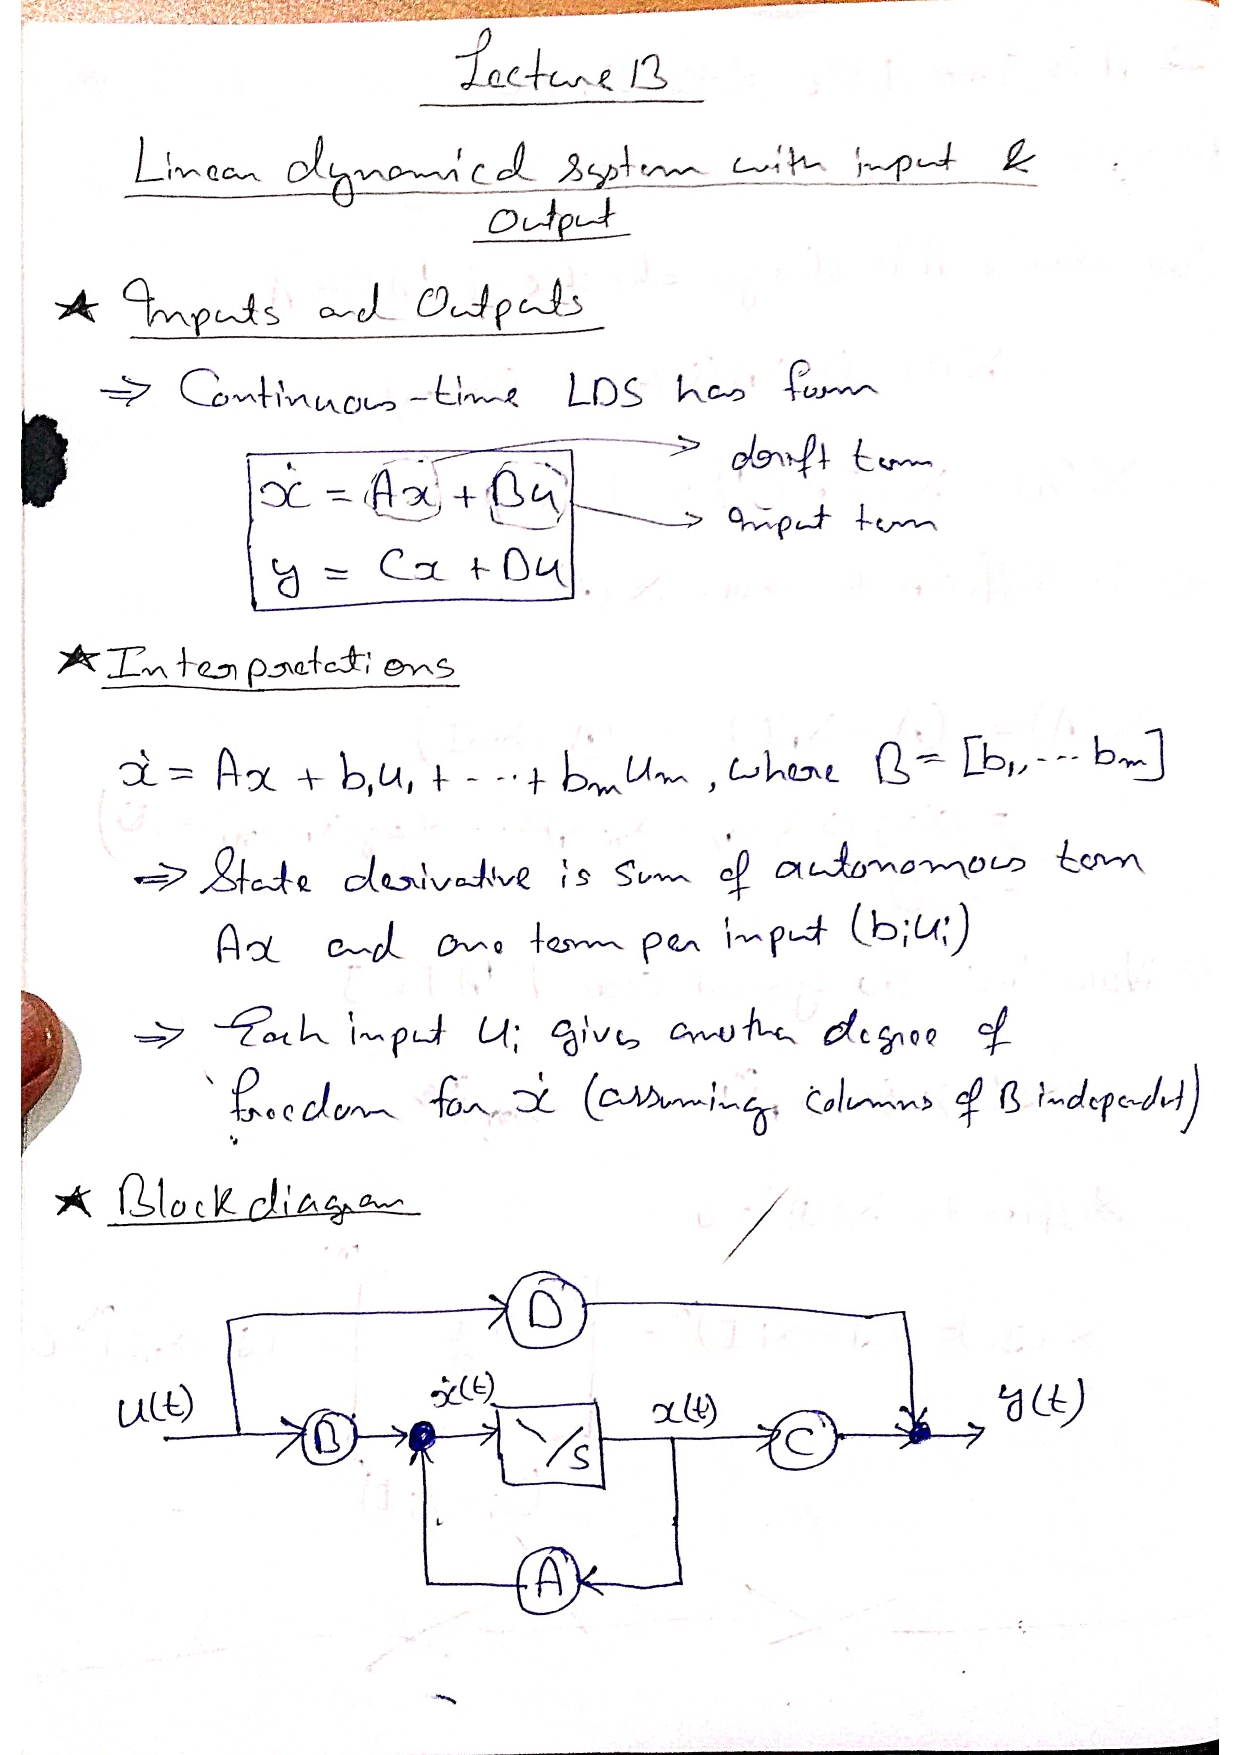 Lecture 13
Linear dynamical system with input &
Output
★ Inputs and Outputs
⇒ Continuous-time LDS has form
ẋ = Ax + Bu → drift term
→ Input term
y = Cx + Du
★ Interpretations
ẋ = Ax + b₁u₁ + - - - + bₘuₘ, where B = [b₁, --- bₘ]
⇒ State derivative is sum of autonomous term
Ax and one term per input (bᵢuᵢ)
⇒ Each input uᵢ gives another degree of
freedom for ẋ (assuming columns of B independent)
★ Block diagram
D
u(t) B ẋ(t) 1/s x(t) C y(t)
A